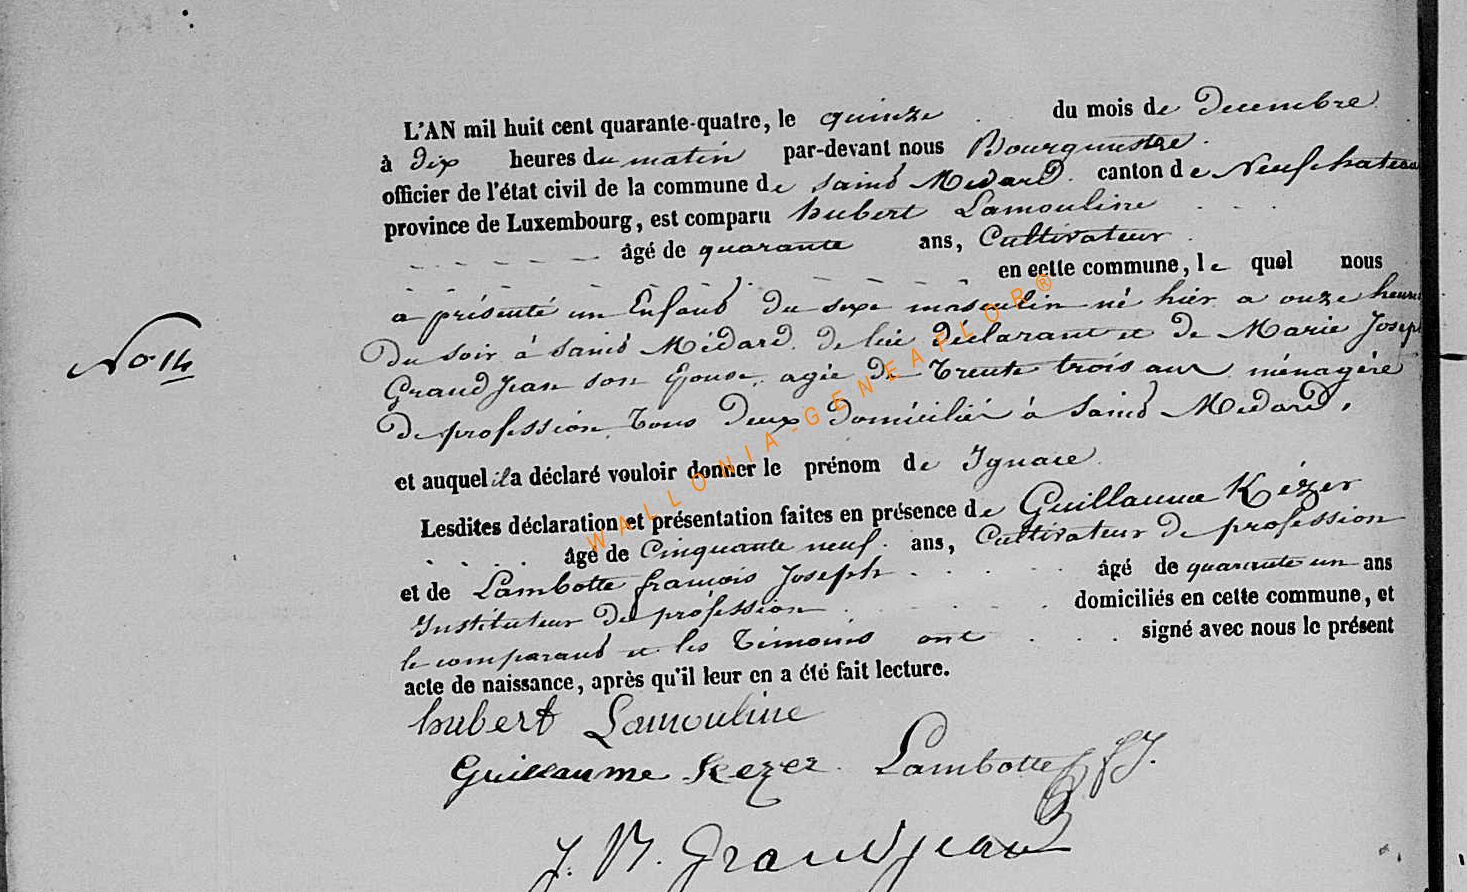 L'AN mil huit cent quarante-quatre, le quinze du mois de Decembre
à dix heures du matin par-devant nous Bourguestre.
officier de l'état civil de la commune de saind Médard. canton de Neufchateau
province de Luxembourg, est comparu hubert Lamouline
âgé de quarante ans, Cultivateur
en cette commune, le quel nous
a présenté un Enfand du sexe masculin né hier a onze heures
du soir à saind Médard. de lui déclarant et de Marie Joseph
Grandjean son Epouse, agée de trente trois ans ménagère
de profession, tous deux domicilié à saind Médard,
et auquel il a déclaré vouloir donner le prénom de Ignace
Lesdites déclaration et présentation faites en présence de Guillaume Kézer
âgé de Cinquante neuf ans, Cultivateur de profession
et de Lambotte françois Joseph âgé de quarante un ans
Instituteur de profession domiciliés en cette commune, et
le comparand et les témoins ont signé avec nous le présent
acte de naissance, après qu'il leur en a été fait lecture.
No 14
hubert Lamouline
Guillaume Kezer Lambotte f J.
J. B. Grandjean
WALLONIA-GENEAFLOR®